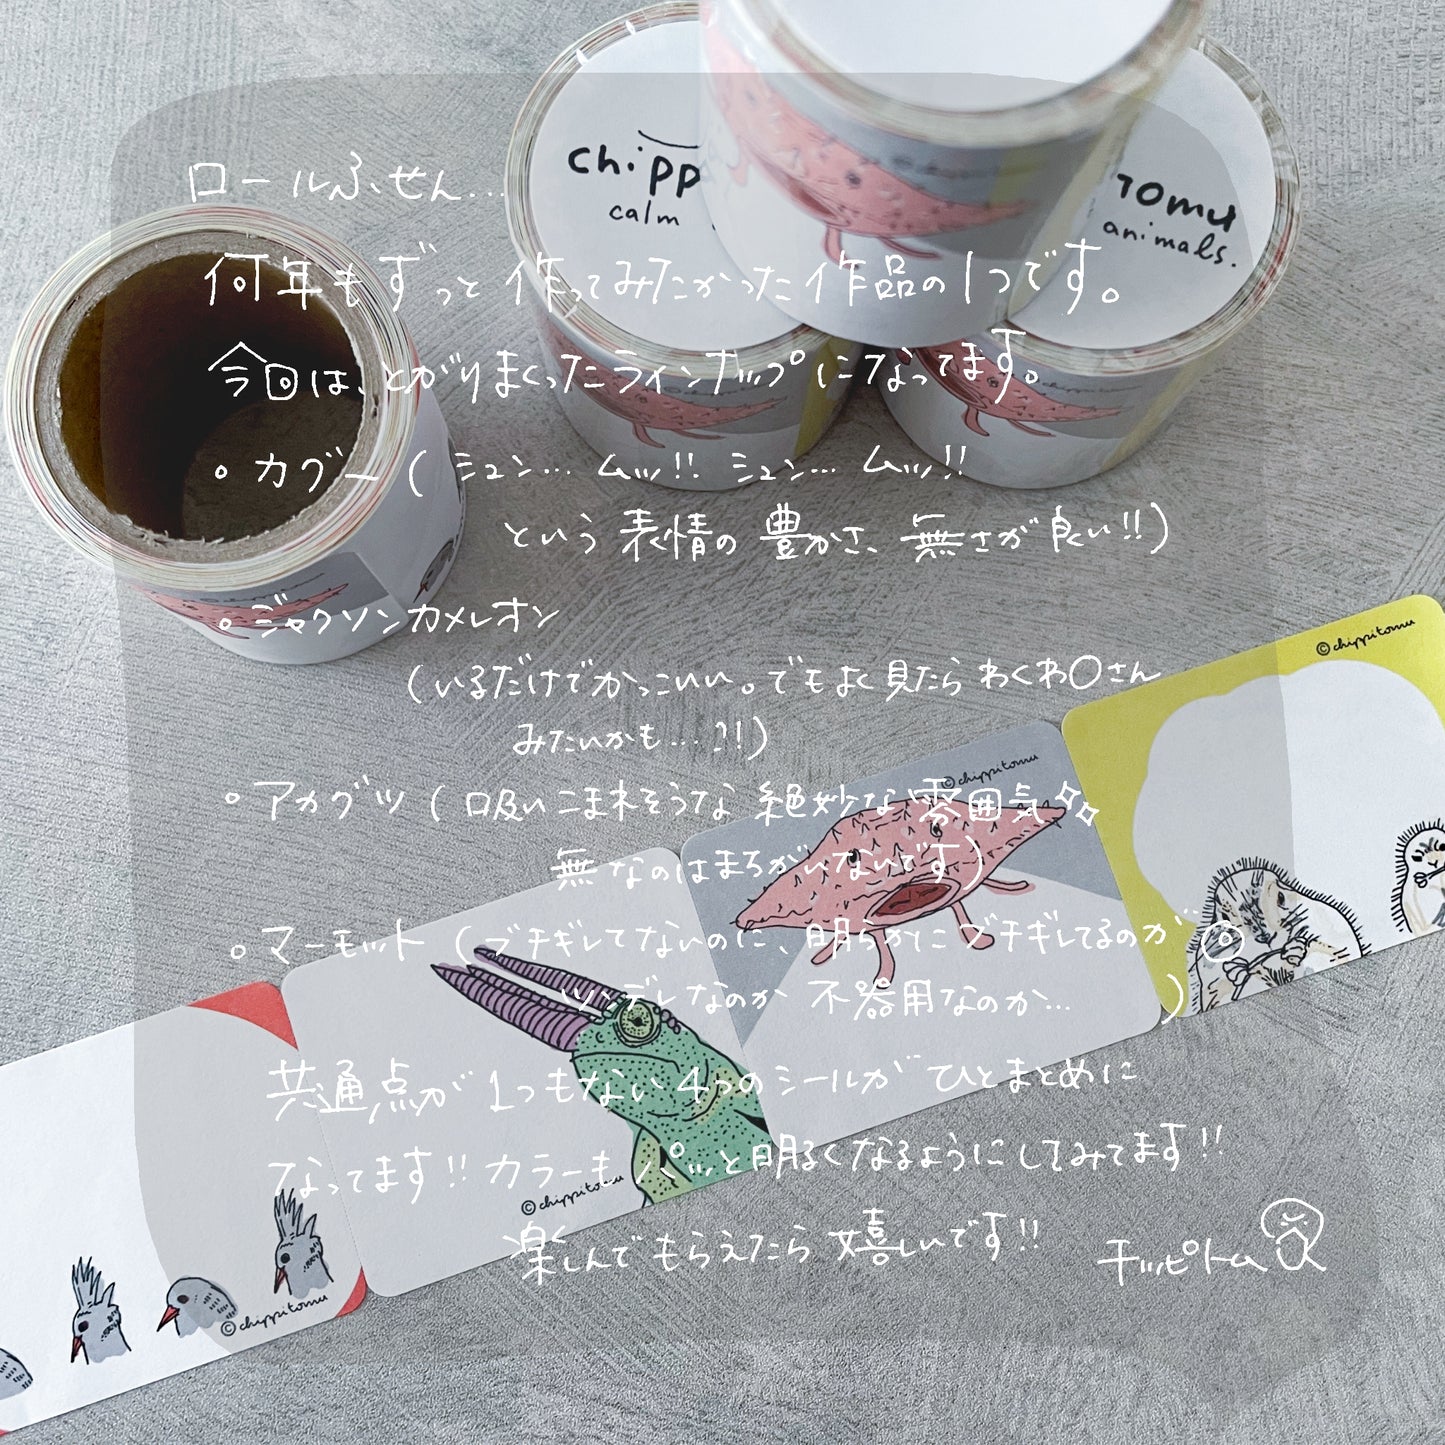 chipp
calm
TOMU
animals.
ロールふせん…
何年もずっと作ってみたかった作品の1つです。
今回は、とがりまくったラインナップになってます。
。カグー(シュン… ムッ!! シュン… ムッ!!
という表情の豊かさ、無さが良い!!)
。ジャクソンカメレオン
(いるだけでかっこいい。でもよく見たらわくわ〇さん
みたいかも…?!)
。アカグツ(吸いこまれそうな絶妙な雰囲気✨
無なのはまちがいないです)
。マーモット(ブチギレてないのに、明らかにブチギレてるのが◎
ツンデレなのか不器用なのか… )
共通点が1つもない4つのシールがひとまとめに
なってます!! カラーもパッと明るくなるようにしてみてます!!
楽しんでもらえたら嬉しいです!! チッピトム
©chippitomu
©chippitomu
©chippitomu
©chippitomu